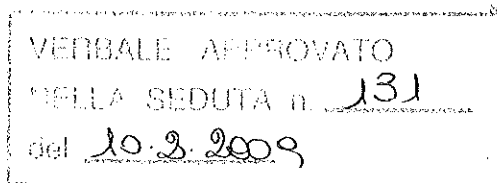 VERBALE APPROVATO
NELLA SEDUTA n. 131
del 10.2.2009